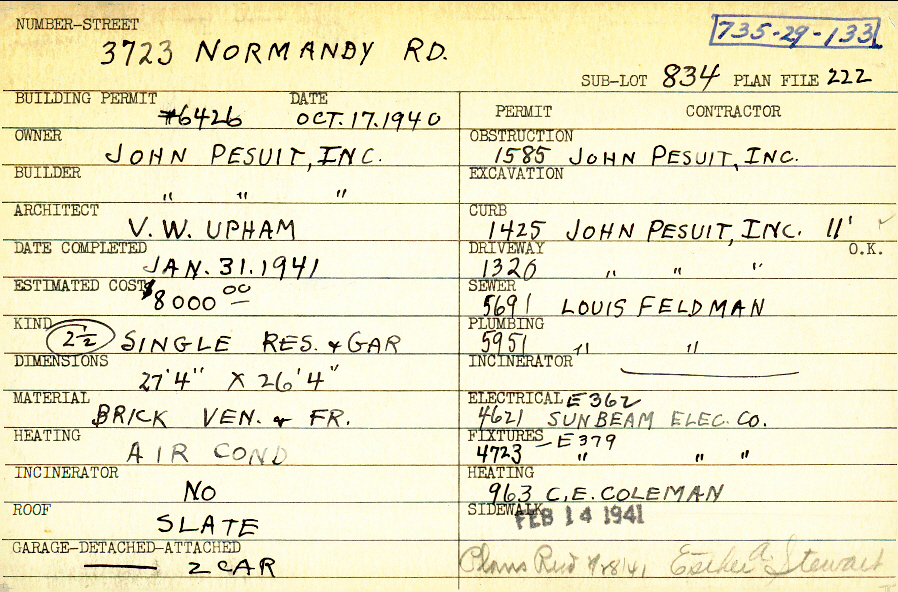 NUMBER-STREET
3723 NORMANDY RD.
735-29-133
SUB-LOT 834 PLAN FILE 222
BUILDING PERMIT DATE
#6426 OCT.17.1940
OWNER
JOHN PESUIT, INC.
BUILDER
" " "
ARCHITECT
V.W. UPHAM
DATE COMPLETED
JAN.31.1941
ESTIMATED COST
$8000 00
KIND
2½ SINGLE RES. & GAR
DIMENSIONS
27'4" X 26'4"
MATERIAL
BRICK VEN. & FR.
HEATING
AIR COND
INCINERATOR
NO
ROOF
SLATE
GARAGE-DETACHED-ATTACHED
2 CAR
PERMIT CONTRACTOR
OBSTRUCTION
1585 JOHN PESUIT, INC.
EXCAVATION
CURB
1425 JOHN PESUIT, INC. 11'
DRIVEWAY O.K.
1320 " " "
SEWER
5691 LOUIS FELDMAN
PLUMBING
5951 " "
INCINERATOR
ELECTRICAL E362
4621 SUNBEAM ELEC. CO.
FIXTURES E379
4723 " " "
HEATING
963 C.E. COLEMAN
SIDEWALK
FEB 14 1941
Plans Esther A. Stewart